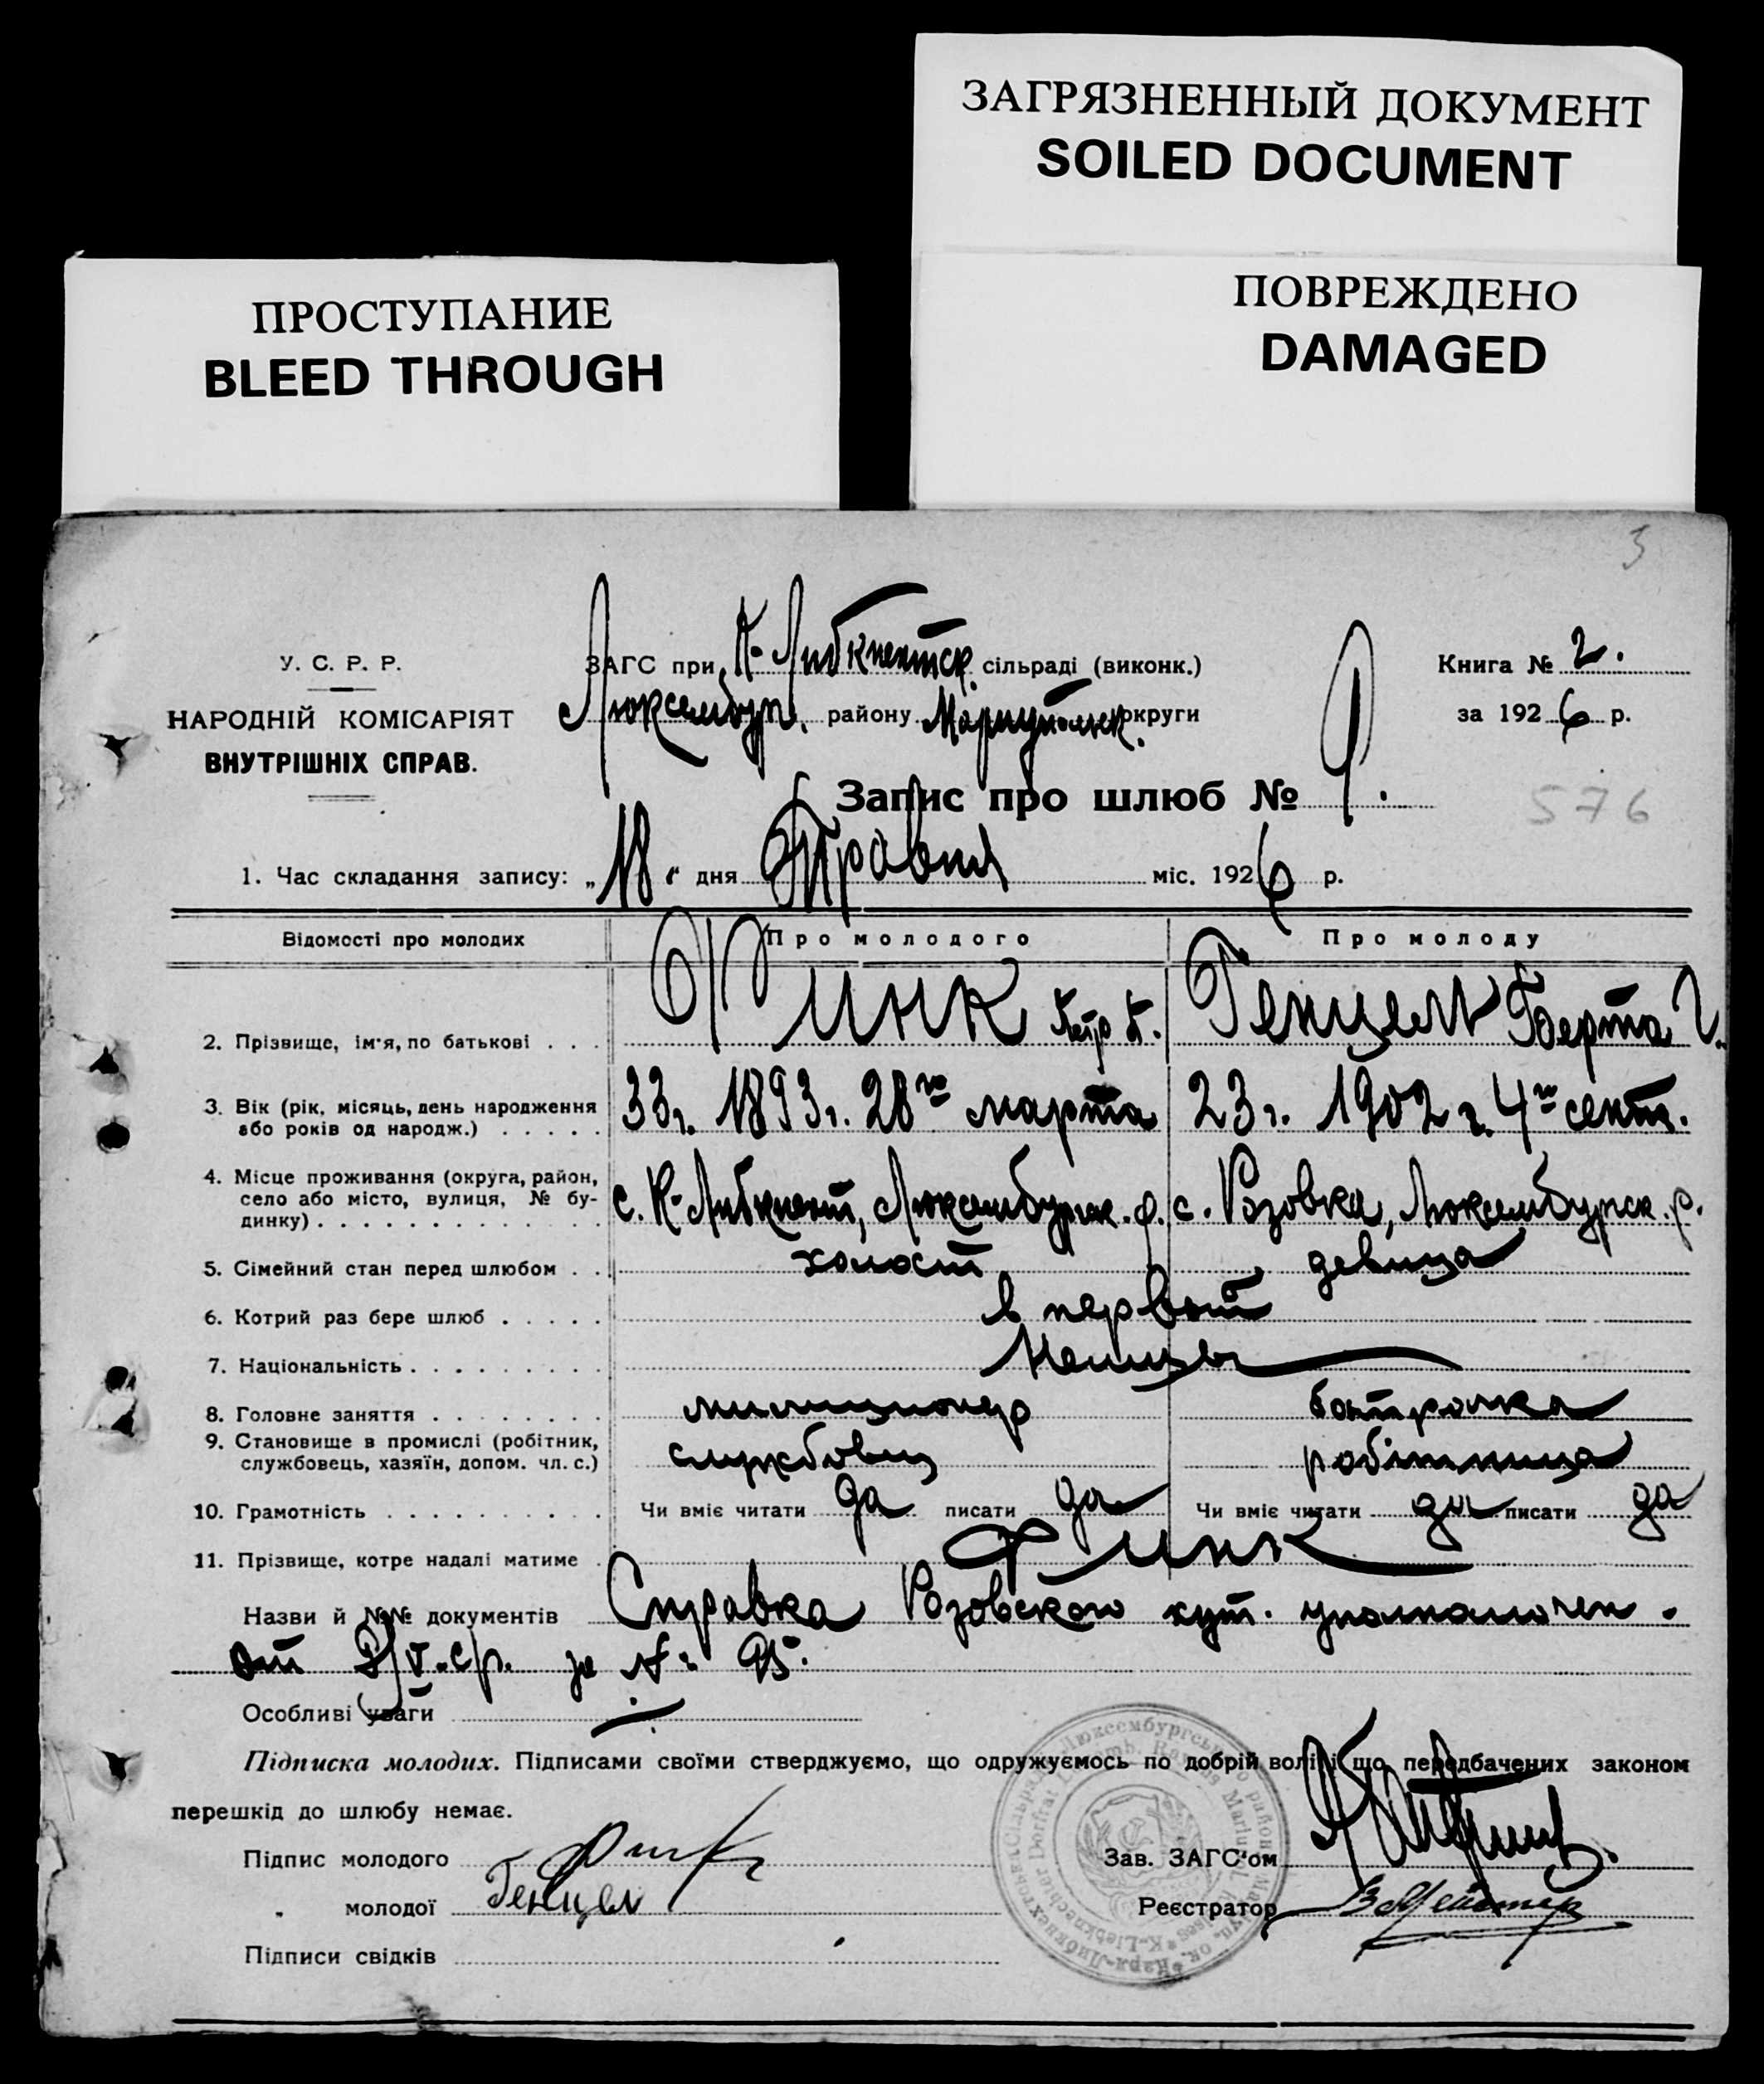 ЗАГРЯЗНЕННЫЙ ДОКУМЕНТ
SOILED DOCUMENT
ПРОСТУПАНИЕ
BLEED THROUGH
ПОВРЕЖДЕНО
DAMAGED
3
У. С. Р. Р.
НАРОДНІЙ КОМІСАРІЯТ
ВНУТРІШНІХ СПРАВ.
ЗАГС при К-Либкнехтск. сільраді (виконк.)
Люксембур. району Мариупольск. округи
Книга № 2.
за 1926 р.
Запис про шлюб № 9.
576
1. Час складання запису: „18" дня Травня міс. 1926 р.
Відомості про молодих Про молодого Про молоду
2. Прізвище, ім'я, по батькові . . . Финк Петр П. Генцел Берта Г.
3. Вік (рік, місяць, день народження 33 г. 1893 г. 28го марта 23 г. 1902 г. 4го сент.
або років од народж.) . . . . .
4. Місце проживання (округа, район, с. К-Либкнехт, Люксембургск. р. с. Розовка, Люксембургск. р.
село або місто, вулиця, № бу-
динку) . . . . . . . . . . . . .
5. Сімейний стан перед шлюбом . . холост девица
6. Котрий раз бере шлюб . . . . . в первый
7. Національність . . . . . . . . . Немцы
8. Головне заняття . . . . . . . . милиционер батрачка
9. Становище в промислі (робітник, службовец робітница
службовець, хазяїн, допом. чл. с.)
10. Грамотність . . . . . . . . . . Чи вміє читати да писати да Чи вміє читати да писати да
11. Прізвище, котре надалі матиме . Финк
Назви й №№ документів Справка Розовского хут. уполномочен.
от 2/V с/г. за № 95.
Особливі уваги
Підписка молодих. Підписами своїми стверджуємо, що одружуємось по добрій волі і що передбачених законом
перешкід до шлюбу немає.
Підпис молодого Финк
„ молодої Генцел
Підписи свідків
Зав. ЗАГС'ом
Реєстратор